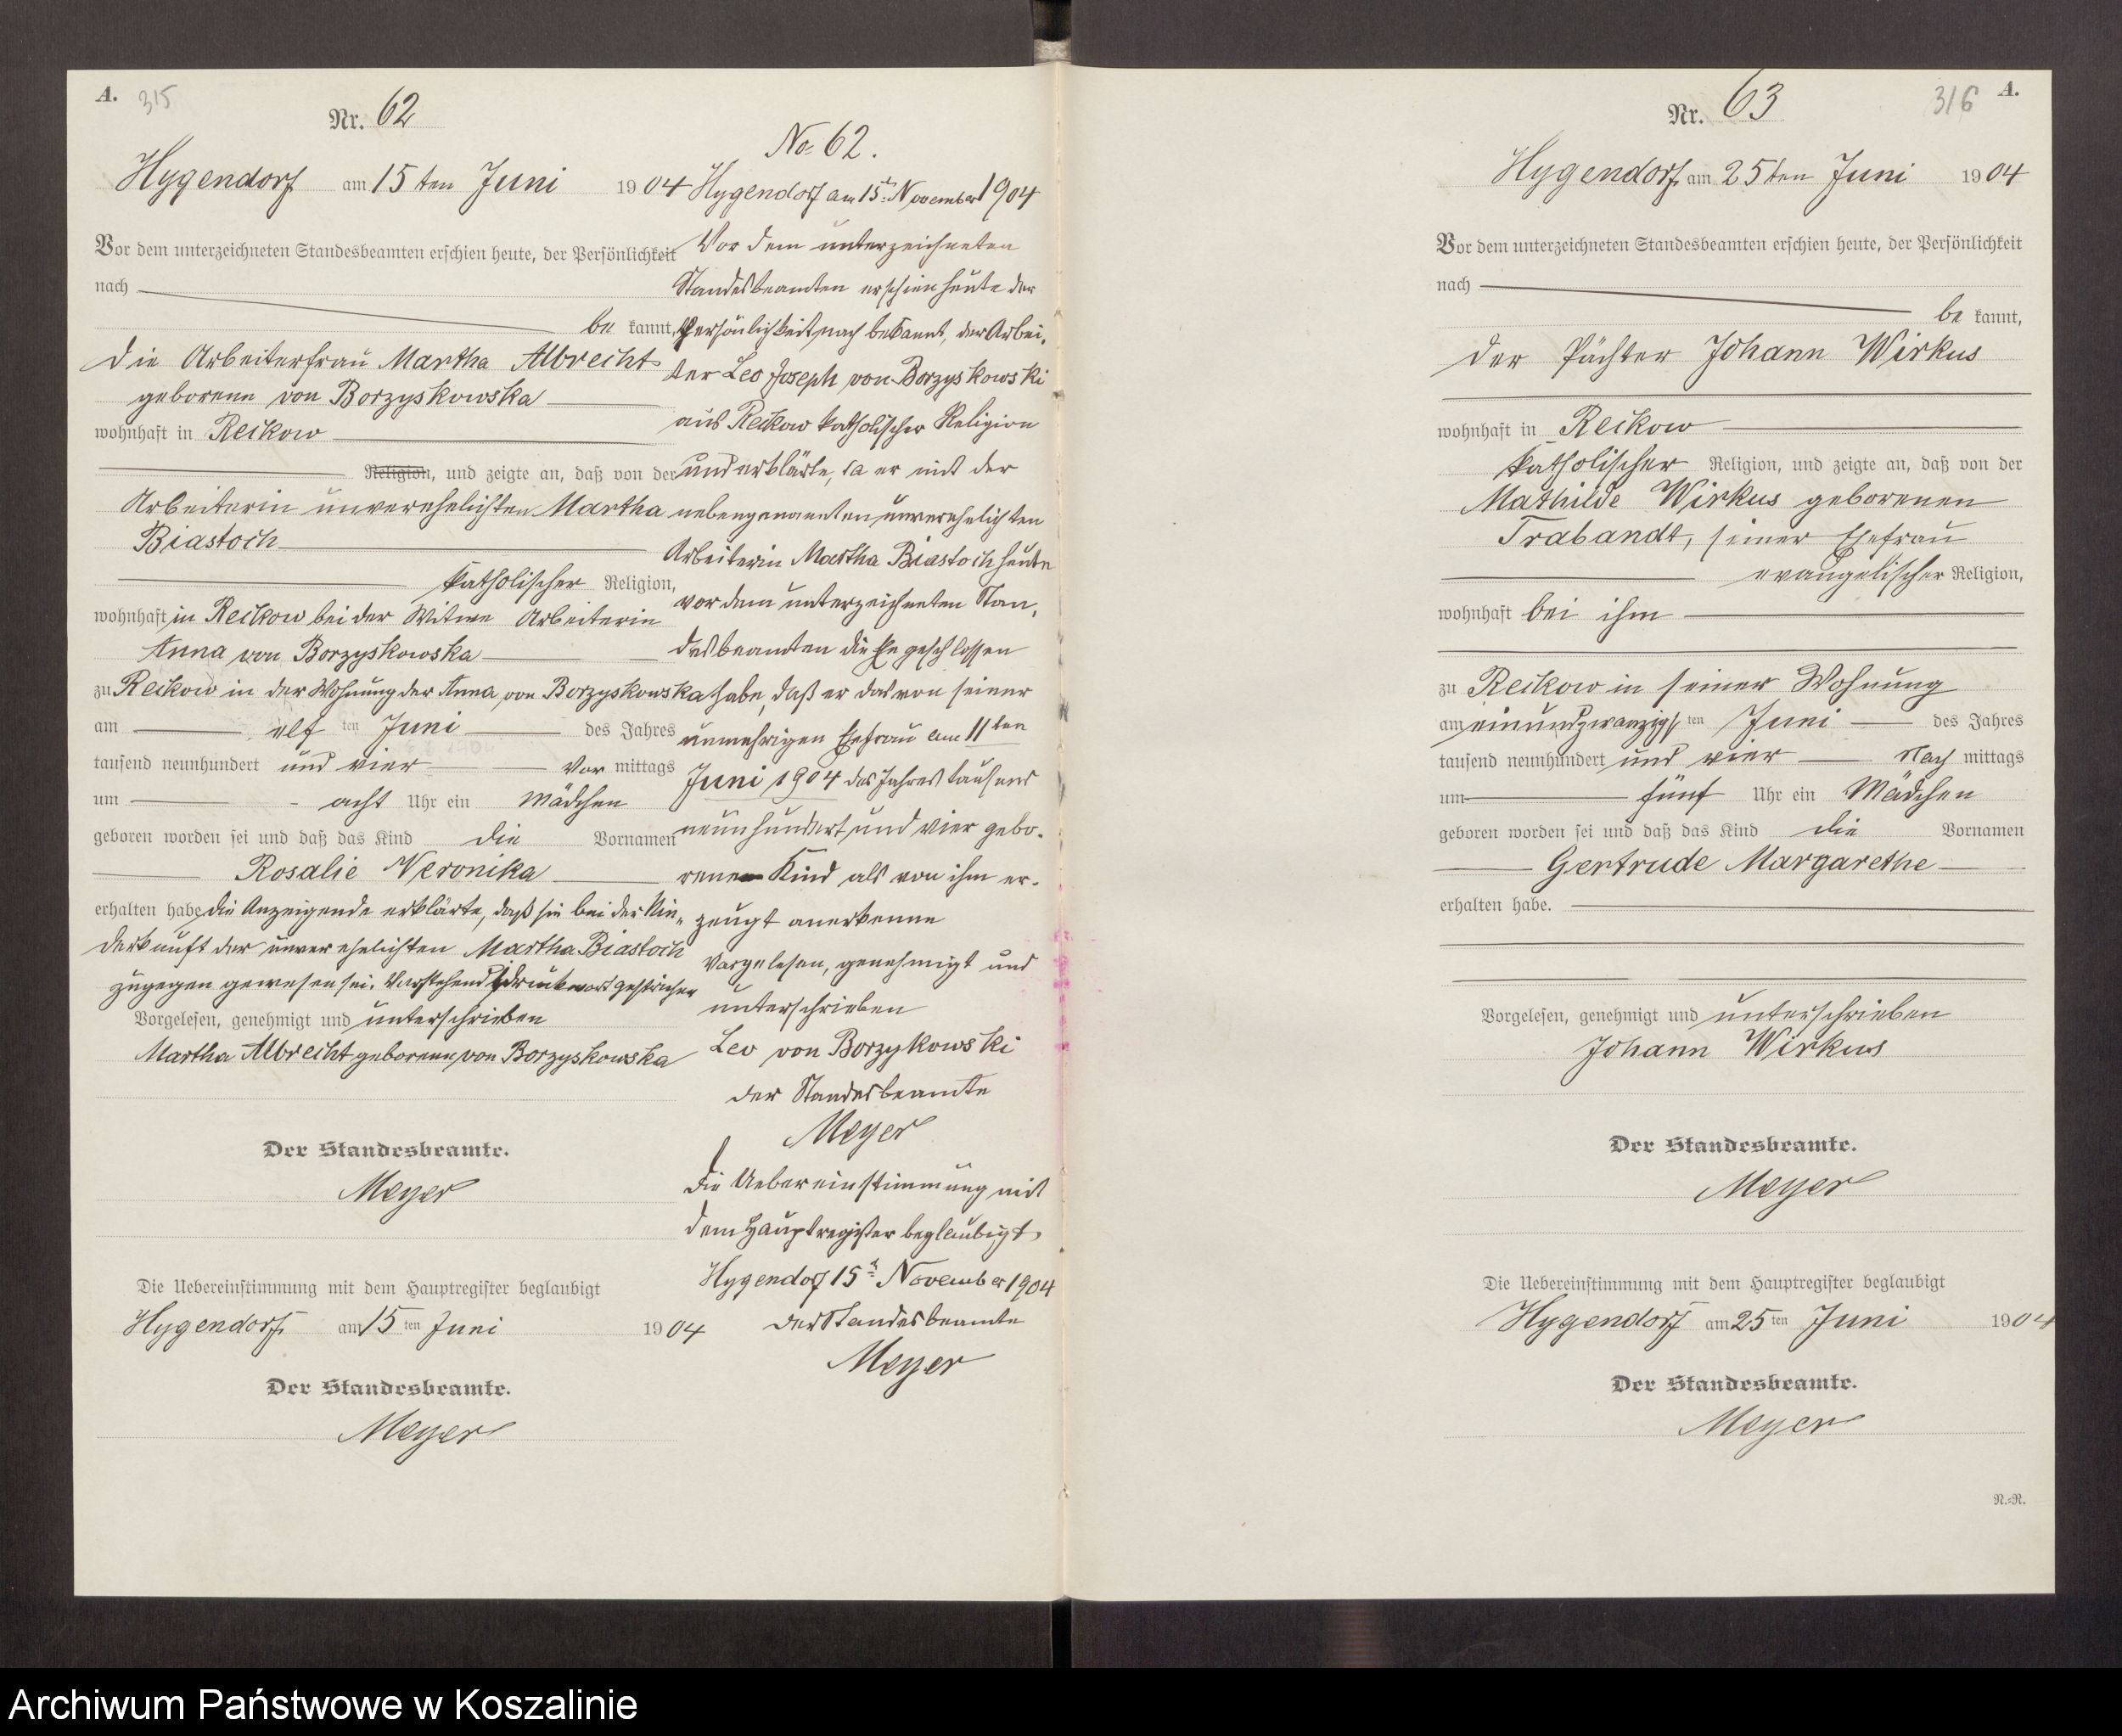 A. 315
Nr. 62
Hygendorf am 15ten Juni 1904
Vor dem unterzeichneten Standesbeamten erschien heute, der Persönlichkeit
nach
be kannt,
die Arbeiterfrau Martha Albrecht
geborene von Borzyskowska
wohnhaft in Reckow
Religion, und zeigte an, daß von der
Arbeiterin unverehelichten Martha
Biastoch
katholischer Religion,
wohnhaft in Reckow bei der Witwe Arbeiterin
Anna von Borzyskowska
zu Reckow in der Wohnung der Anna von Borzyskowska
am elf ten Juni des Jahres
tausend neunhundert und vier Vor mittags
um acht Uhr ein Mädchen
geboren worden sei und daß das Kind die Vornamen
Rosalie Veronika
erhalten habe die Anzeigende erklärte, daß sie bei der Nie-
derkunft der unverehelichten Martha Biastoch
zugegen gewesen sei. Vorstehend 1 Druckwort gestrichen
Vorgelesen, genehmigt und unterschrieben
Martha Albrecht geborene von Borzyskowska
Der Standesbeamte.
Meyer
Die Uebereinstimmung mit dem Hauptregister beglaubigt
Hygendorf am 15ten Juni 1904
Der Standesbeamte.
Meyer
No 62.
Hygendorf am 15t November 1904
Vor dem unterzeichneten
Standesbeamten erschien heute der
Persönlichkeit nach bekannt, der Arbei-
ter Leo Joseph von Borzyskowski
aus Reckow katholischer Religion
und erklärte, da er mit der
nebengenannten unverehelichten
Arbeiterin Martha Biastoch heute
vor dem unterzeichneten Stan-
desbeamten die Ehe geschlossen
habe, daß er das von seiner
nunmehrigen Ehefrau am 11ten
Juni 1904 des Jahres tausend
neunhundert und vier gebo-
rene Kind als von ihm er-
zeugt anerkenne
Vorgelesen, genehmigt und
unterschrieben
Leo von Borzykowski
der Standesbeamte
Meyer
Die Uebereinstimmung mit
dem Hauptregister beglaubigt
Hygendorf 15t November 1904
der Standesbeamte
Meyer
316 A.
Nr. 63
Hygendorf am 25ten Juni 1904
Vor dem unterzeichneten Standesbeamten erschien heute, der Persönlichkeit
nach
be kannt,
der Pächter Johann Wirkus
wohnhaft in Reckow
katholischer Religion, und zeigte an, daß von der
Mathilde Wirkus geborenen
Trabandt, seiner Ehefrau
evangelischer Religion,
wohnhaft bei ihm
zu Reckow in seiner Wohnung
am einundzwanzigs ten Juni des Jahres
tausend neunhundert und vier Nach mittags
um fünf Uhr ein Mädchen
geboren worden sei und daß das Kind die Vornamen
Gertrude Margarethe
erhalten habe.
Vorgelesen, genehmigt und unterschrieben
Johann Wirkus
Der Standesbeamte.
Meyer
Die Uebereinstimmung mit dem Hauptregister beglaubigt
Hygendorf am 25ten Juni 1904
Der Standesbeamte.
Meyer
N.=R.
Archiwum Państwowe w Koszalinie